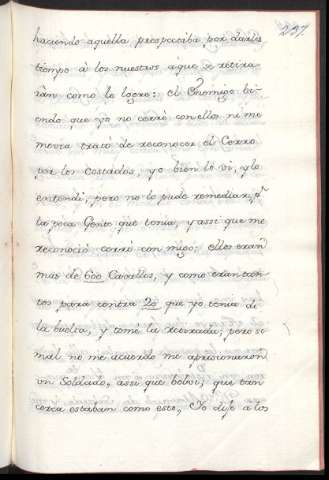 237.
haciendo aquella prespectiba por darle
tiempo à los nuestros aque se retira-
ràn como lo logrè: el Enemigo bi-
endo que yo no corrò con ellos ni me
movia tratò de reconocer el Cerro
por los Costados, yo bien lo vi, y lo
entendi, pero no lo pude remediar, pr
la poca Gente que tenia, y assi que me
reconociò corrò con migo: ellos eran
mas de 600 Cavallos, y como eran tan-
tos para contra 20 que yo tenia dì
la buelta, y tomè la retirada; pero si
mal no me acuerdo me aprisionaron
un Soldado, assi que bolbi, que tan
cerca estaban como este, Yo dije a los